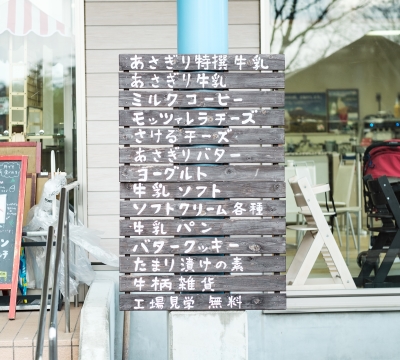 あさぎり特撰牛乳
あさぎり牛乳
ミルクコーヒー
モッツァレラチーズ
さけるチーズ
あさぎりバター
ヨーグルト
牛乳ソフト
ソフトクリーム各種
牛乳パン
バタークッキー
たまり漬けの素
牛柄雑貨
工場見学 無料